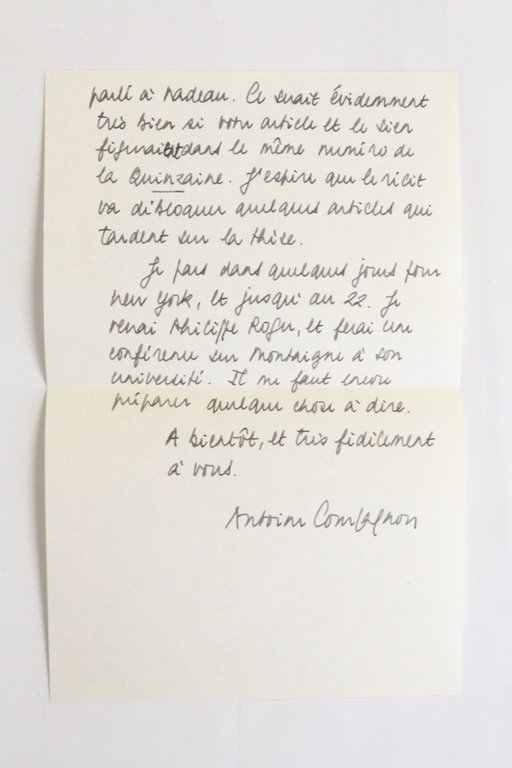 parlé à Nadeau. Ce serait évidemment
très bien si votre article et le sien
figuraient dans le même numéro de
la Quinzaine. J'espère que le récit
va débloquer quelques articles qui
tardent sur la thèse.
Je pars dans quelques jours pour
New York, et jusqu'au 22. Je
verrai Philippe Roger, et ferai une
conférence sur Montaigne à son
université. Il me faut encore
préparer quelque chose à dire.
A bientôt, et très fidèlement
à vous.
Antoine Compagnon